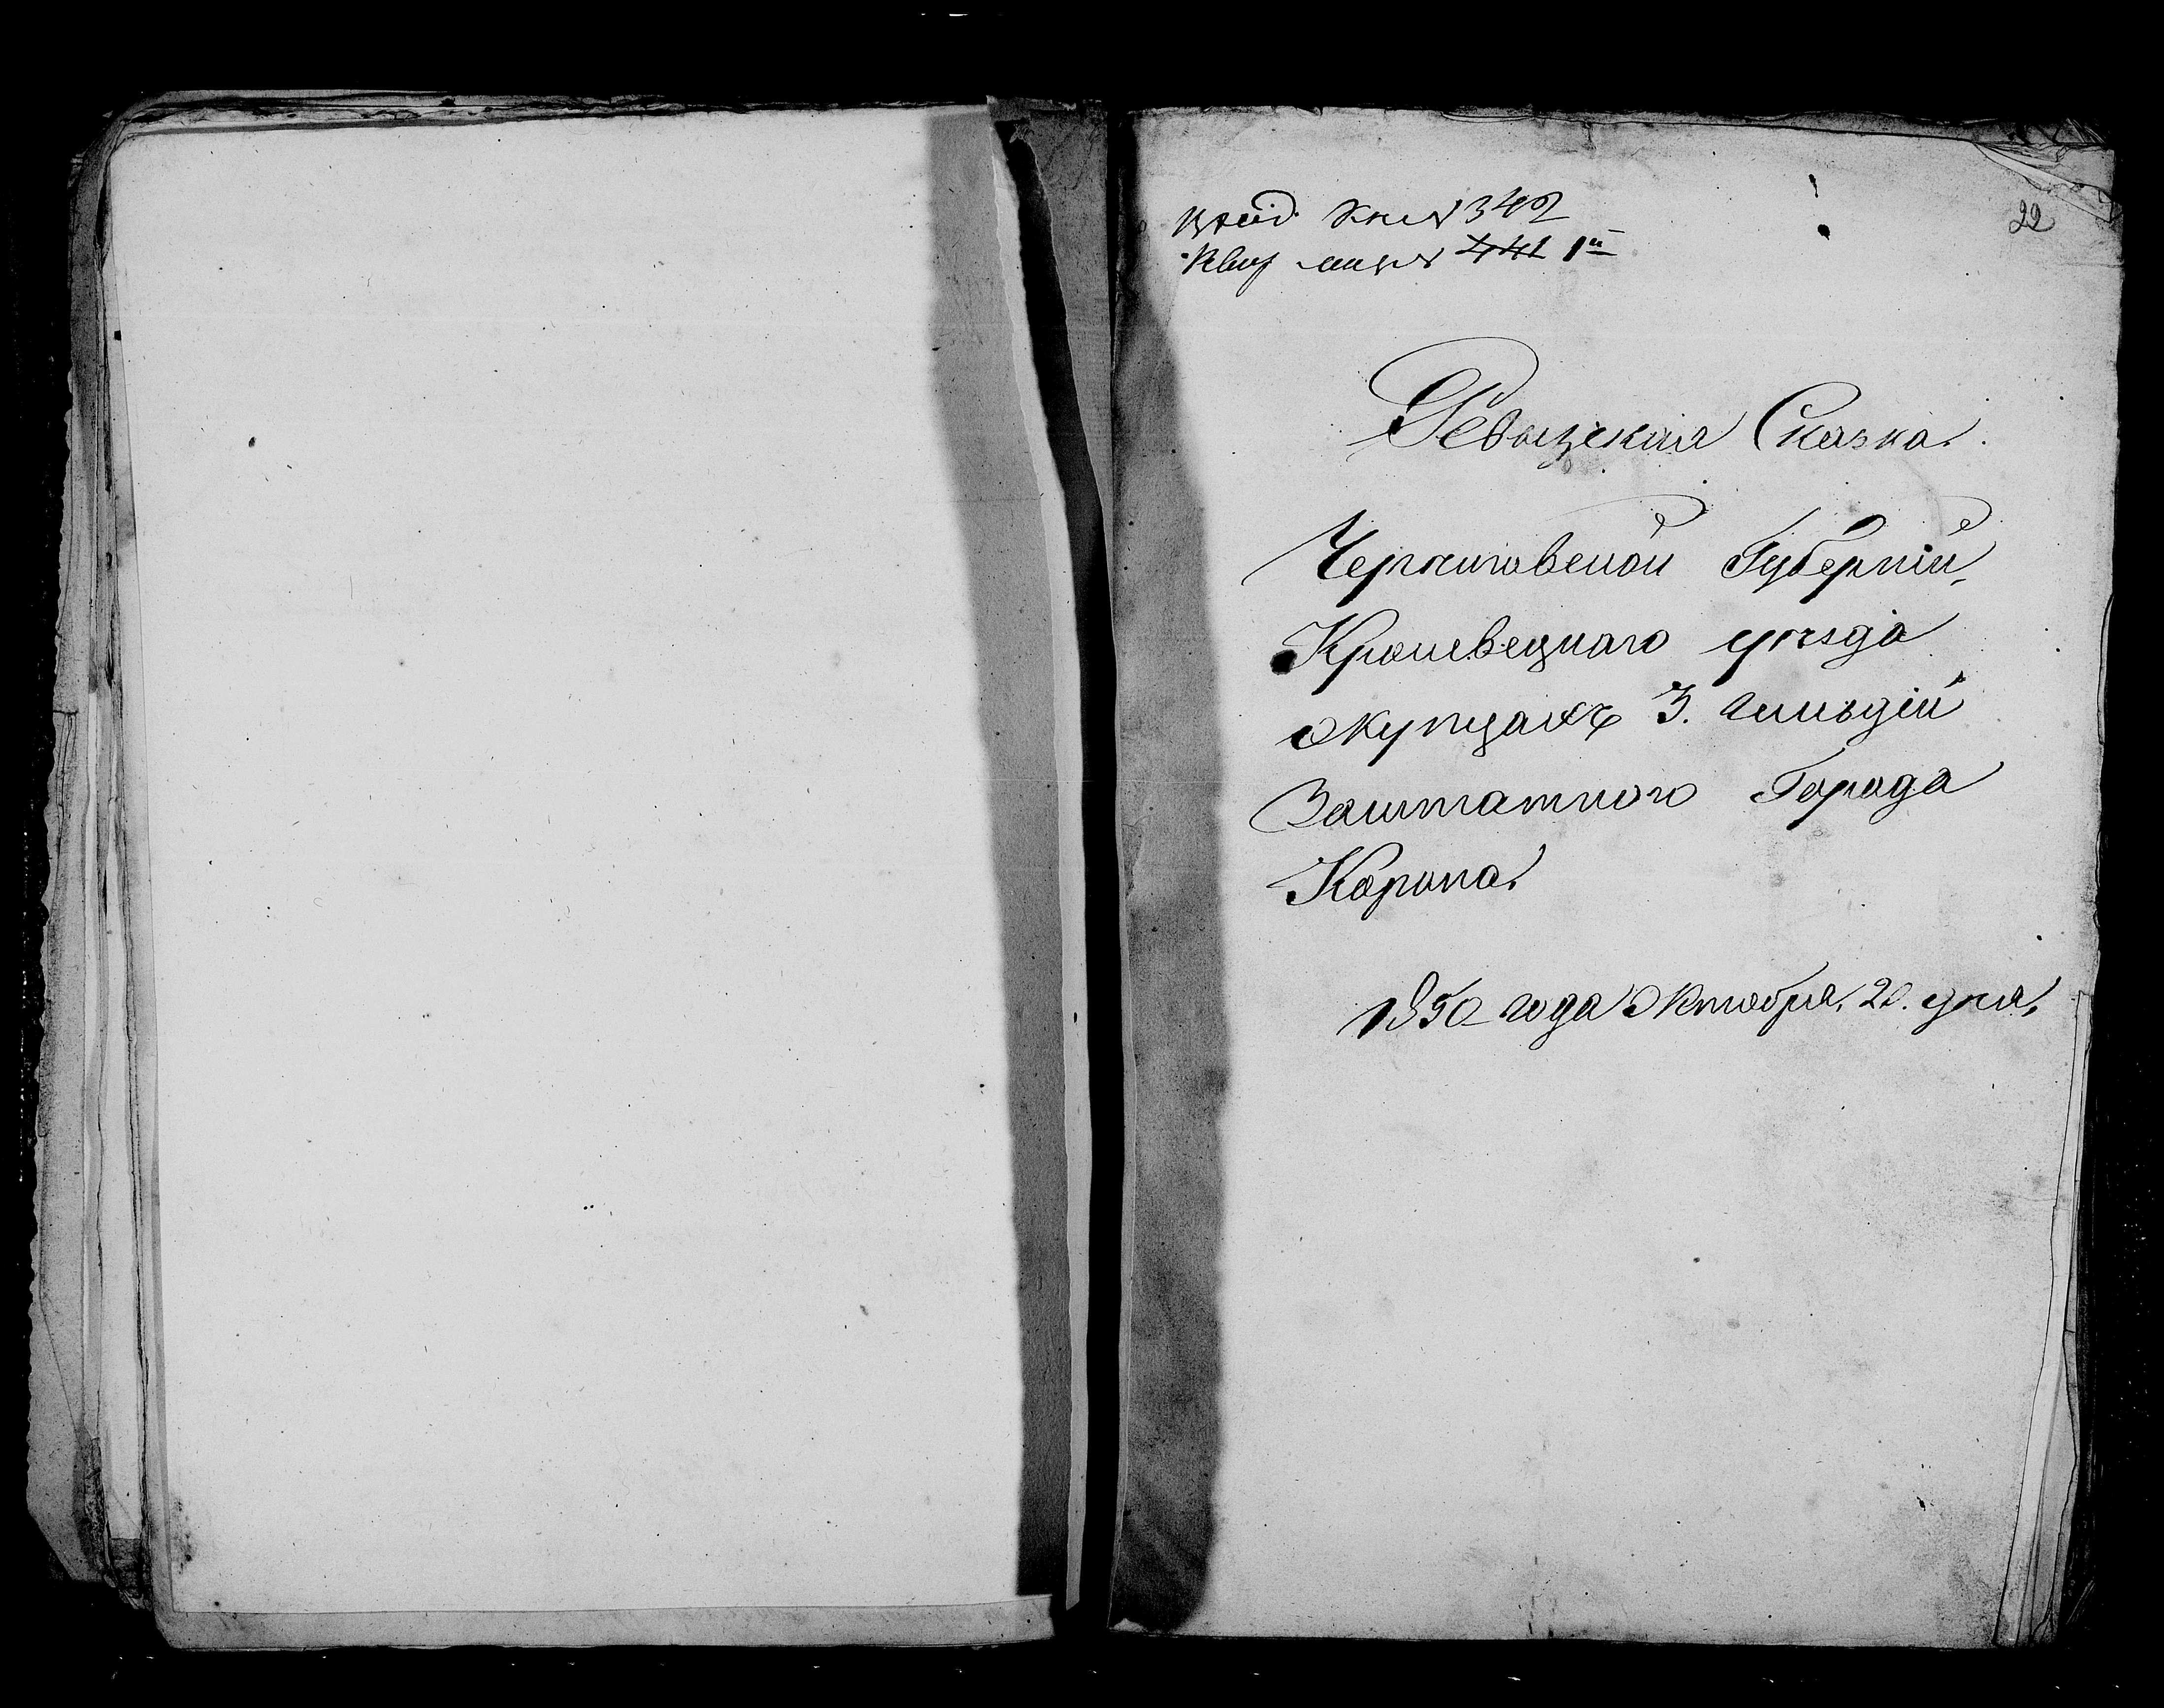 22
№ 342
№ 441 1й
Ревизская Сказка.
Черниговской Губерніи,
Кролевецкаго уѣзда
о купцахъ 3. Гильдіи
Заштатного Города
Коропа.
1850 года Октября, 20. дня,